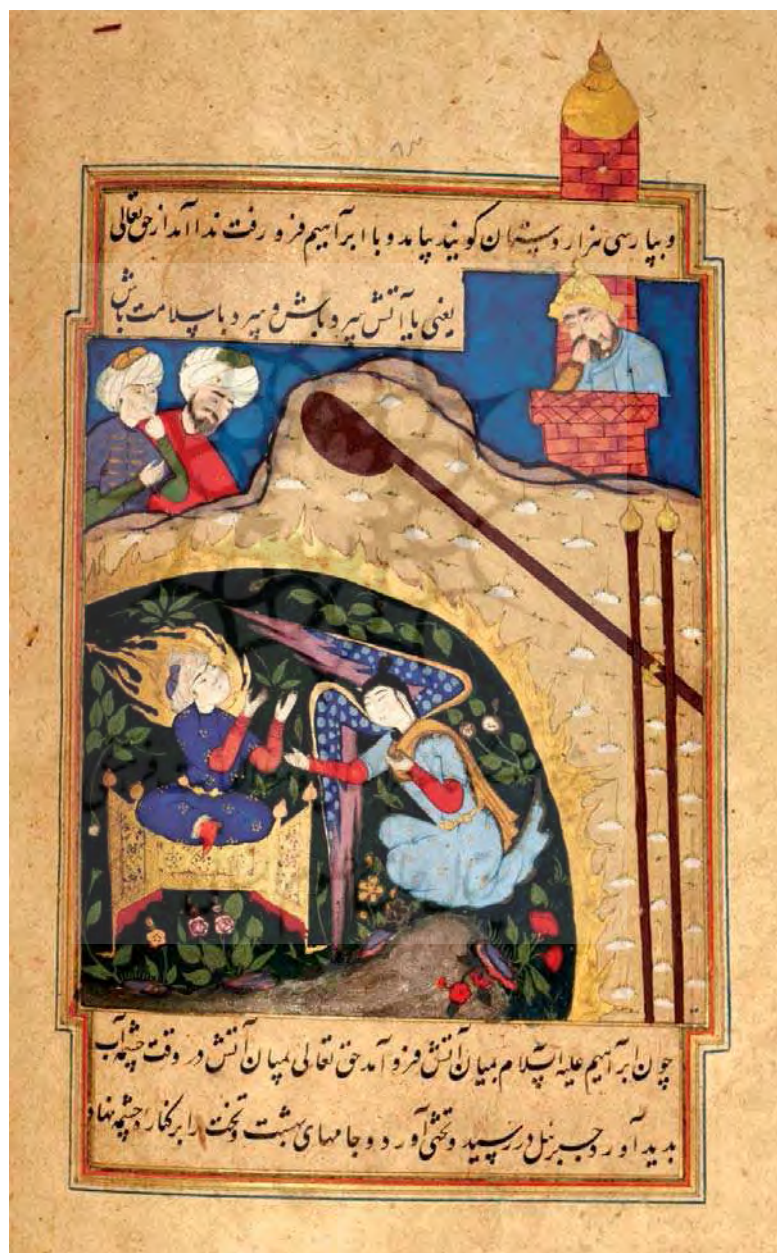 و بپارسی هزار دستان کویند بیامد و با ابراهیم فرو رفت ندا آمد از حق تعالی
یعنی یا آتش سرد باش و سرد با سلامت باش
چون ابراهیم علیه السلام بمیان آتش فرو آمد حق تعالی بمیان آتش در وقت چشمه آب
بدید آورد جبرئیل در رسید و تختی آورد و جامهای بهشت و تخت را بر کناره چشمه نهاد